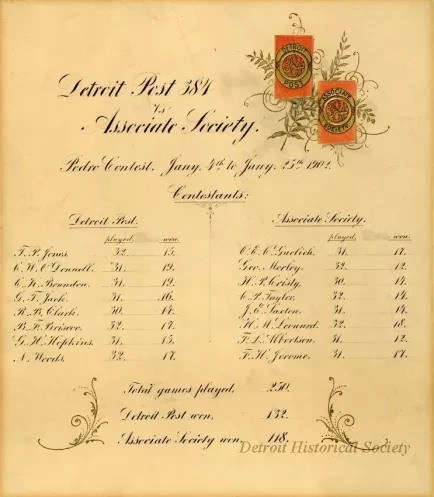 DETROIT
POST
ASSOCIATE
SOCIETY
Detroit Post 384
Vs
Associate Society.
Pedro Contest. Jany. 4th to Jany. 25th 1902.
Contestants:
Detroit Post.
played. won.
T. P. Jones. 32. 15.
C. W. O'Donnell. 31. 19.
C. K. Brandon. 31. 19.
G. T. Jack. 31. 16.
R. B. Clark. 30. 14.
B. F. Briscoe. 32. 17.
G. H. Hopkins. 31. 15.
N. Woods. 32. 17.
Associate Society.
played. won.
O. E. C. Guelich. 31. 17.
Geo. Morley. 32. 12.
H. P. Cristy. 30. 14.
C. P. Taylor. 32. 14.
J. E. Saxton. 31. 14.
H. M. Leonard. 32. 18.
F. D. Albertsen. 31. 12.
F. H. Jerome. 31. 17.
Total games played. 250.
Detroit Post won. 132.
Associate Society won. 118.
Detroit Historical Society